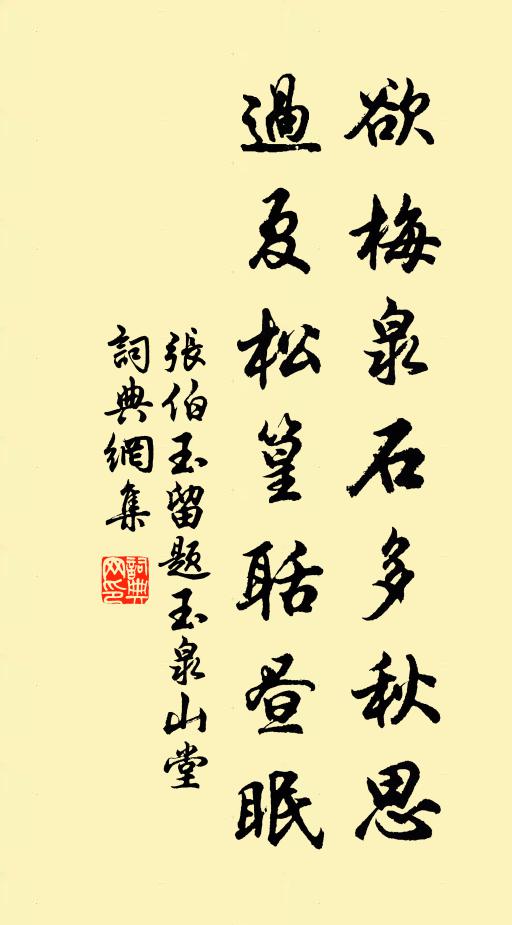 欲梅泉石多秋思
過夏松篁聒昼眠
張伯玉留題玉泉山堂
詞典網集
詞典網印